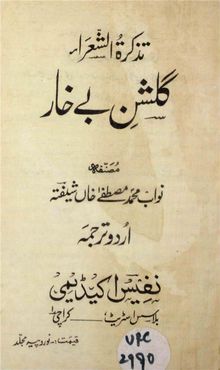 تذکرۃ الشعراء
گلشنِ بے خار
مصنفہ
نواب محمد مصطفےٰ خاں شیفتہ
اردو ترجمہ
نفیس اکیڈیمی
بلاسس اسٹریٹ کراچی
قیمت:۔ نو روپیہ مجلد
URC
2990